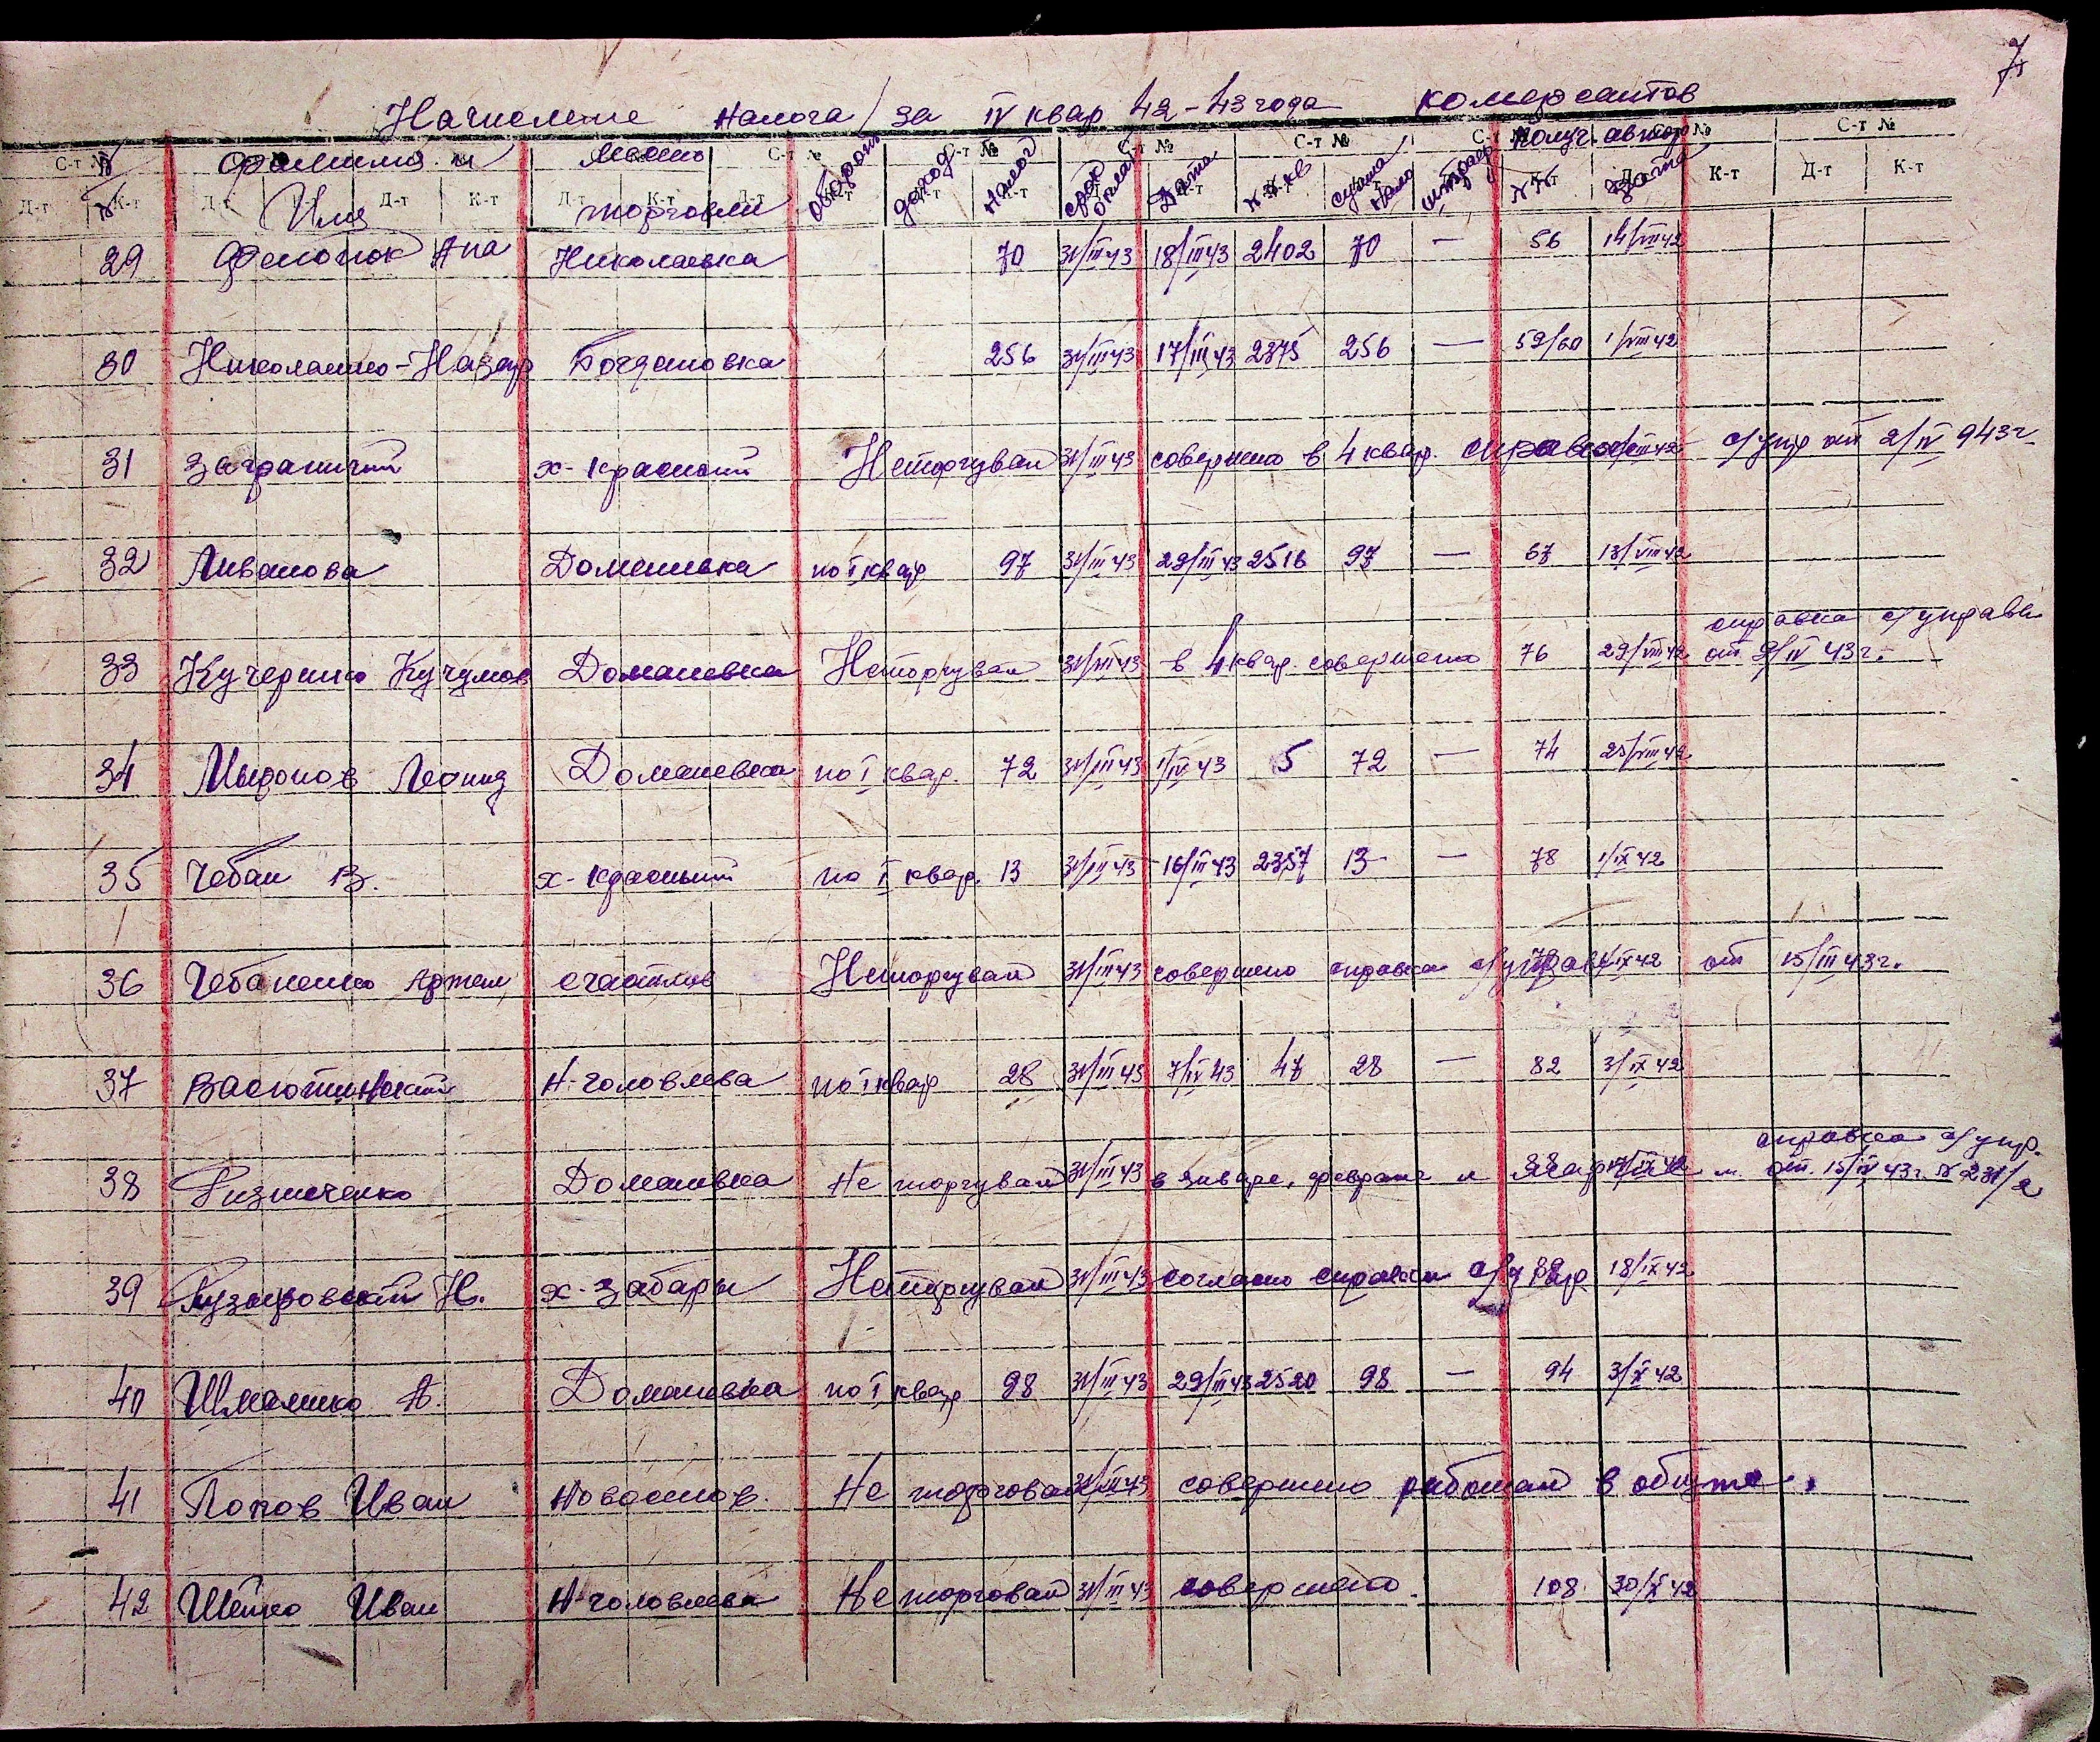 7
Начисление налога за IV квар 42-43 года комерсантов
С-т № С-т № С-т № С-т № С-т № С-т № С-т №
№ Фамилия и Место Оборот доход Налог срок оплат Дата № № кв сумма нало штраф Получ. автор
№ Имя торговли № № Дата
Д-т К-т Д-т Д-т К-т Д-т К-т Д-т К-т Д-т К-т
29 Ана Николаевка 70 31/III 43 18/III 43 2402 70 — 56 14/VIII 42
30 Николаенко-Назар Богдановка 256 31/III 43 17/III 43 2375 256 — 59/60 1/VIII 42
31 Заграничий х-Красный Неторгувал 31/III 43 совершено в 4 квар. справка с/упр от 2/IV 943 г.
32 Ливанова Доманевка по I квар 97 31/III 43 29/III 43 2516 97 — 67 13/VIII 42
справка с/управл
33 Кучеренко Доманевка Неторгувал 31/III 43 в 4 квар. совершено 76 29/VIII 42 от 9/IV 43 г.
34 Миронов Леонид Доманевка по I квар. 72 31/III 43 1/IV 43 5 72 — 74 25/VIII 42
35 Чебан В. х-Красный по I квар. 13 31/III 43 16/III 43 2357 13 — 78 1/IX 42
36 Чебаненко Артем счастлив Неторгувал 31/III 43 совершено справка с/управ IX 42 от 15/III 43 г.
37 Васютинский Н-головлева по I квар 28 31/III 43 7/IV 43 47 28 — 82 3/IX 42
справка с/упр.
38 Доманевка Не торгувал 31/III 43 в январе, феврале и от 15/IV 43 г. № 231/2
39 Н. х-Забары Неторгувал 31/III 43 согласно справки с/упр 18/IX 42
40 Шмалико А. Доманевка по I квар 98 31/III 43 29/III 43 2520 98 — 94 3/X 42
41 Попов Иван Новоселов. Не торговал 31/III 43 совершено работал в общине.
42 Шейко Иван Н-головлева Не торговал 31/III 43 совершено. 108. 30/X 42